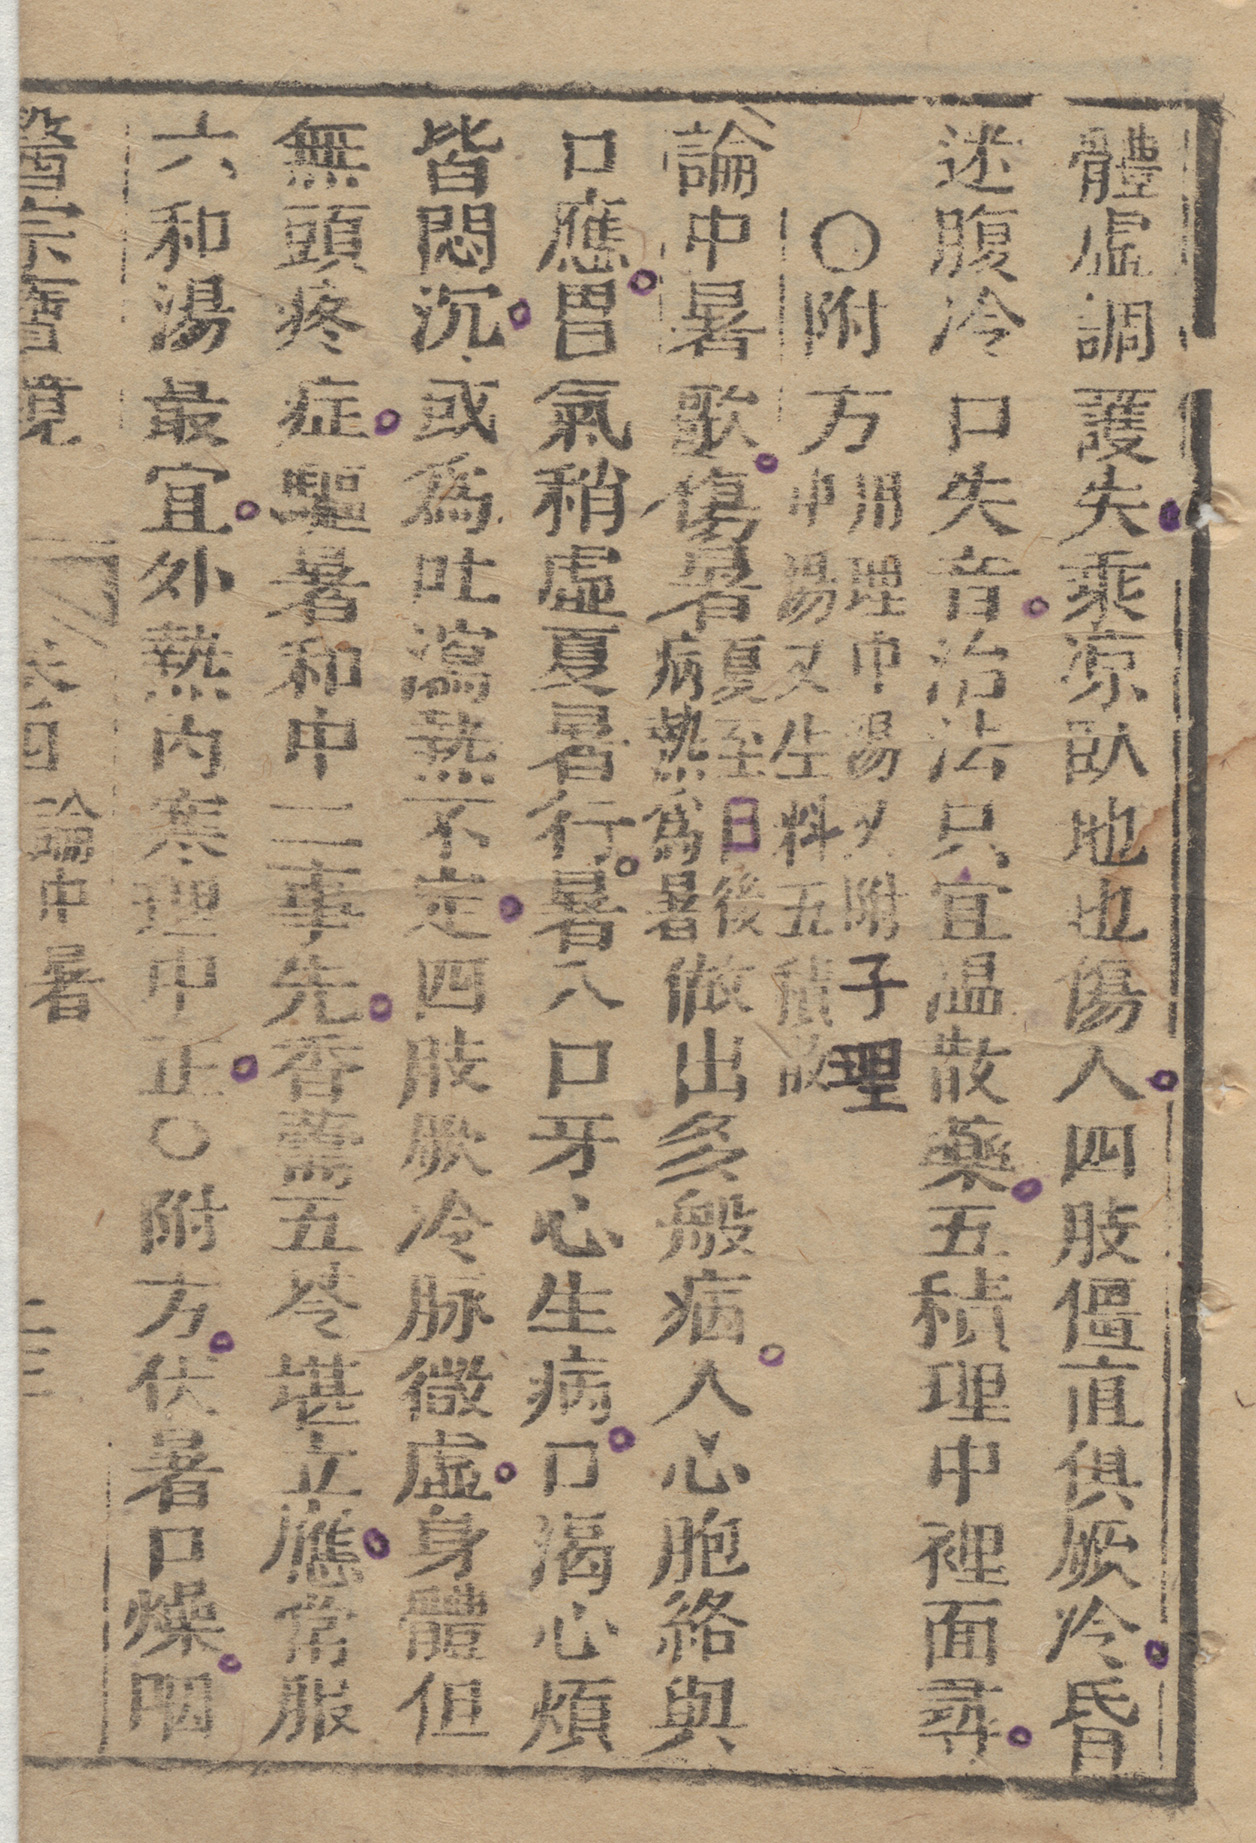 體虛調護失乘凉臥地也傷人四肢僵直俱厥冷昏
迷腹冷口失音治法只宜温散藥五積理中裡面尋
〇附方用理中湯又附子理
中湯又生料五積散
論中暑歌傷暑夏至日後
病熱爲暑做出多般病人心胞絡與
口應胃氣稍虛夏暑行暑入口牙心生病口渴心煩
皆悶沉或爲吐瀉熱不定四肢厥冷脉微虛身體但
無頭疼症驅暑和中二事先香薷五苓堪立應常服
六和湯最宜外熱內寒理中正〇附方伏暑口燥咽
醫宗寶鏡 卷四 論中暑 二三